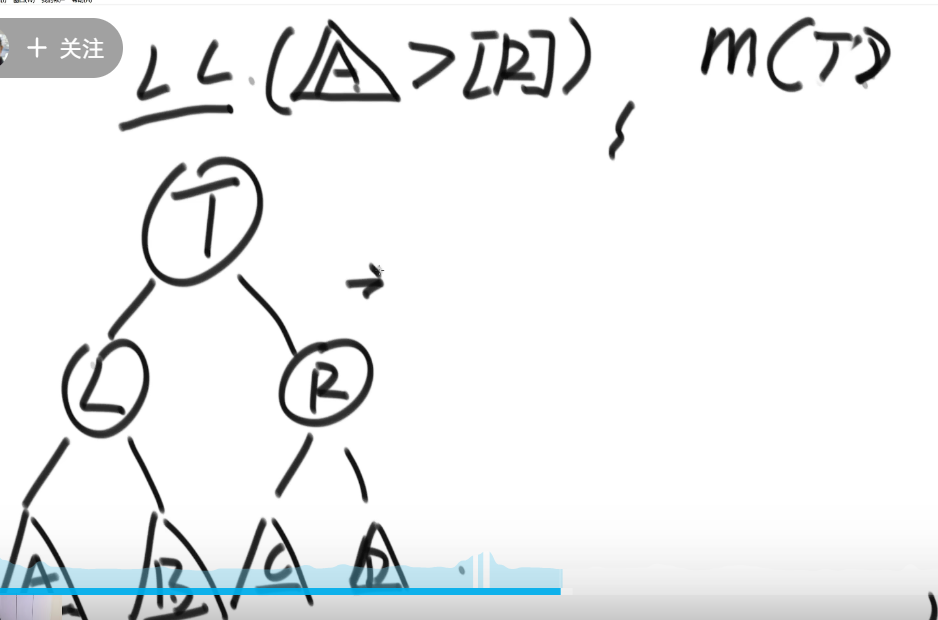 + 关注
LL (A > [R]) m(T)
T
L R
A B C D